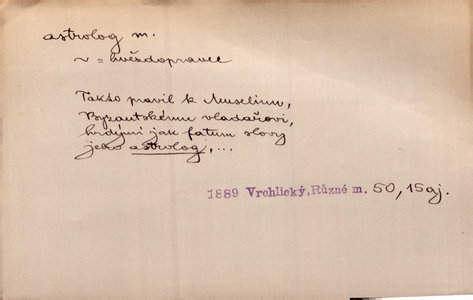 astrolog m.
~ = hvězdopravec
Takto pravil k Muselinu,
Byzantskému vladařovi,
hrdými jak fatum slovy
jeho astrolog, ...
1889 Vrchlický, Různé m. 50, 15 gj.